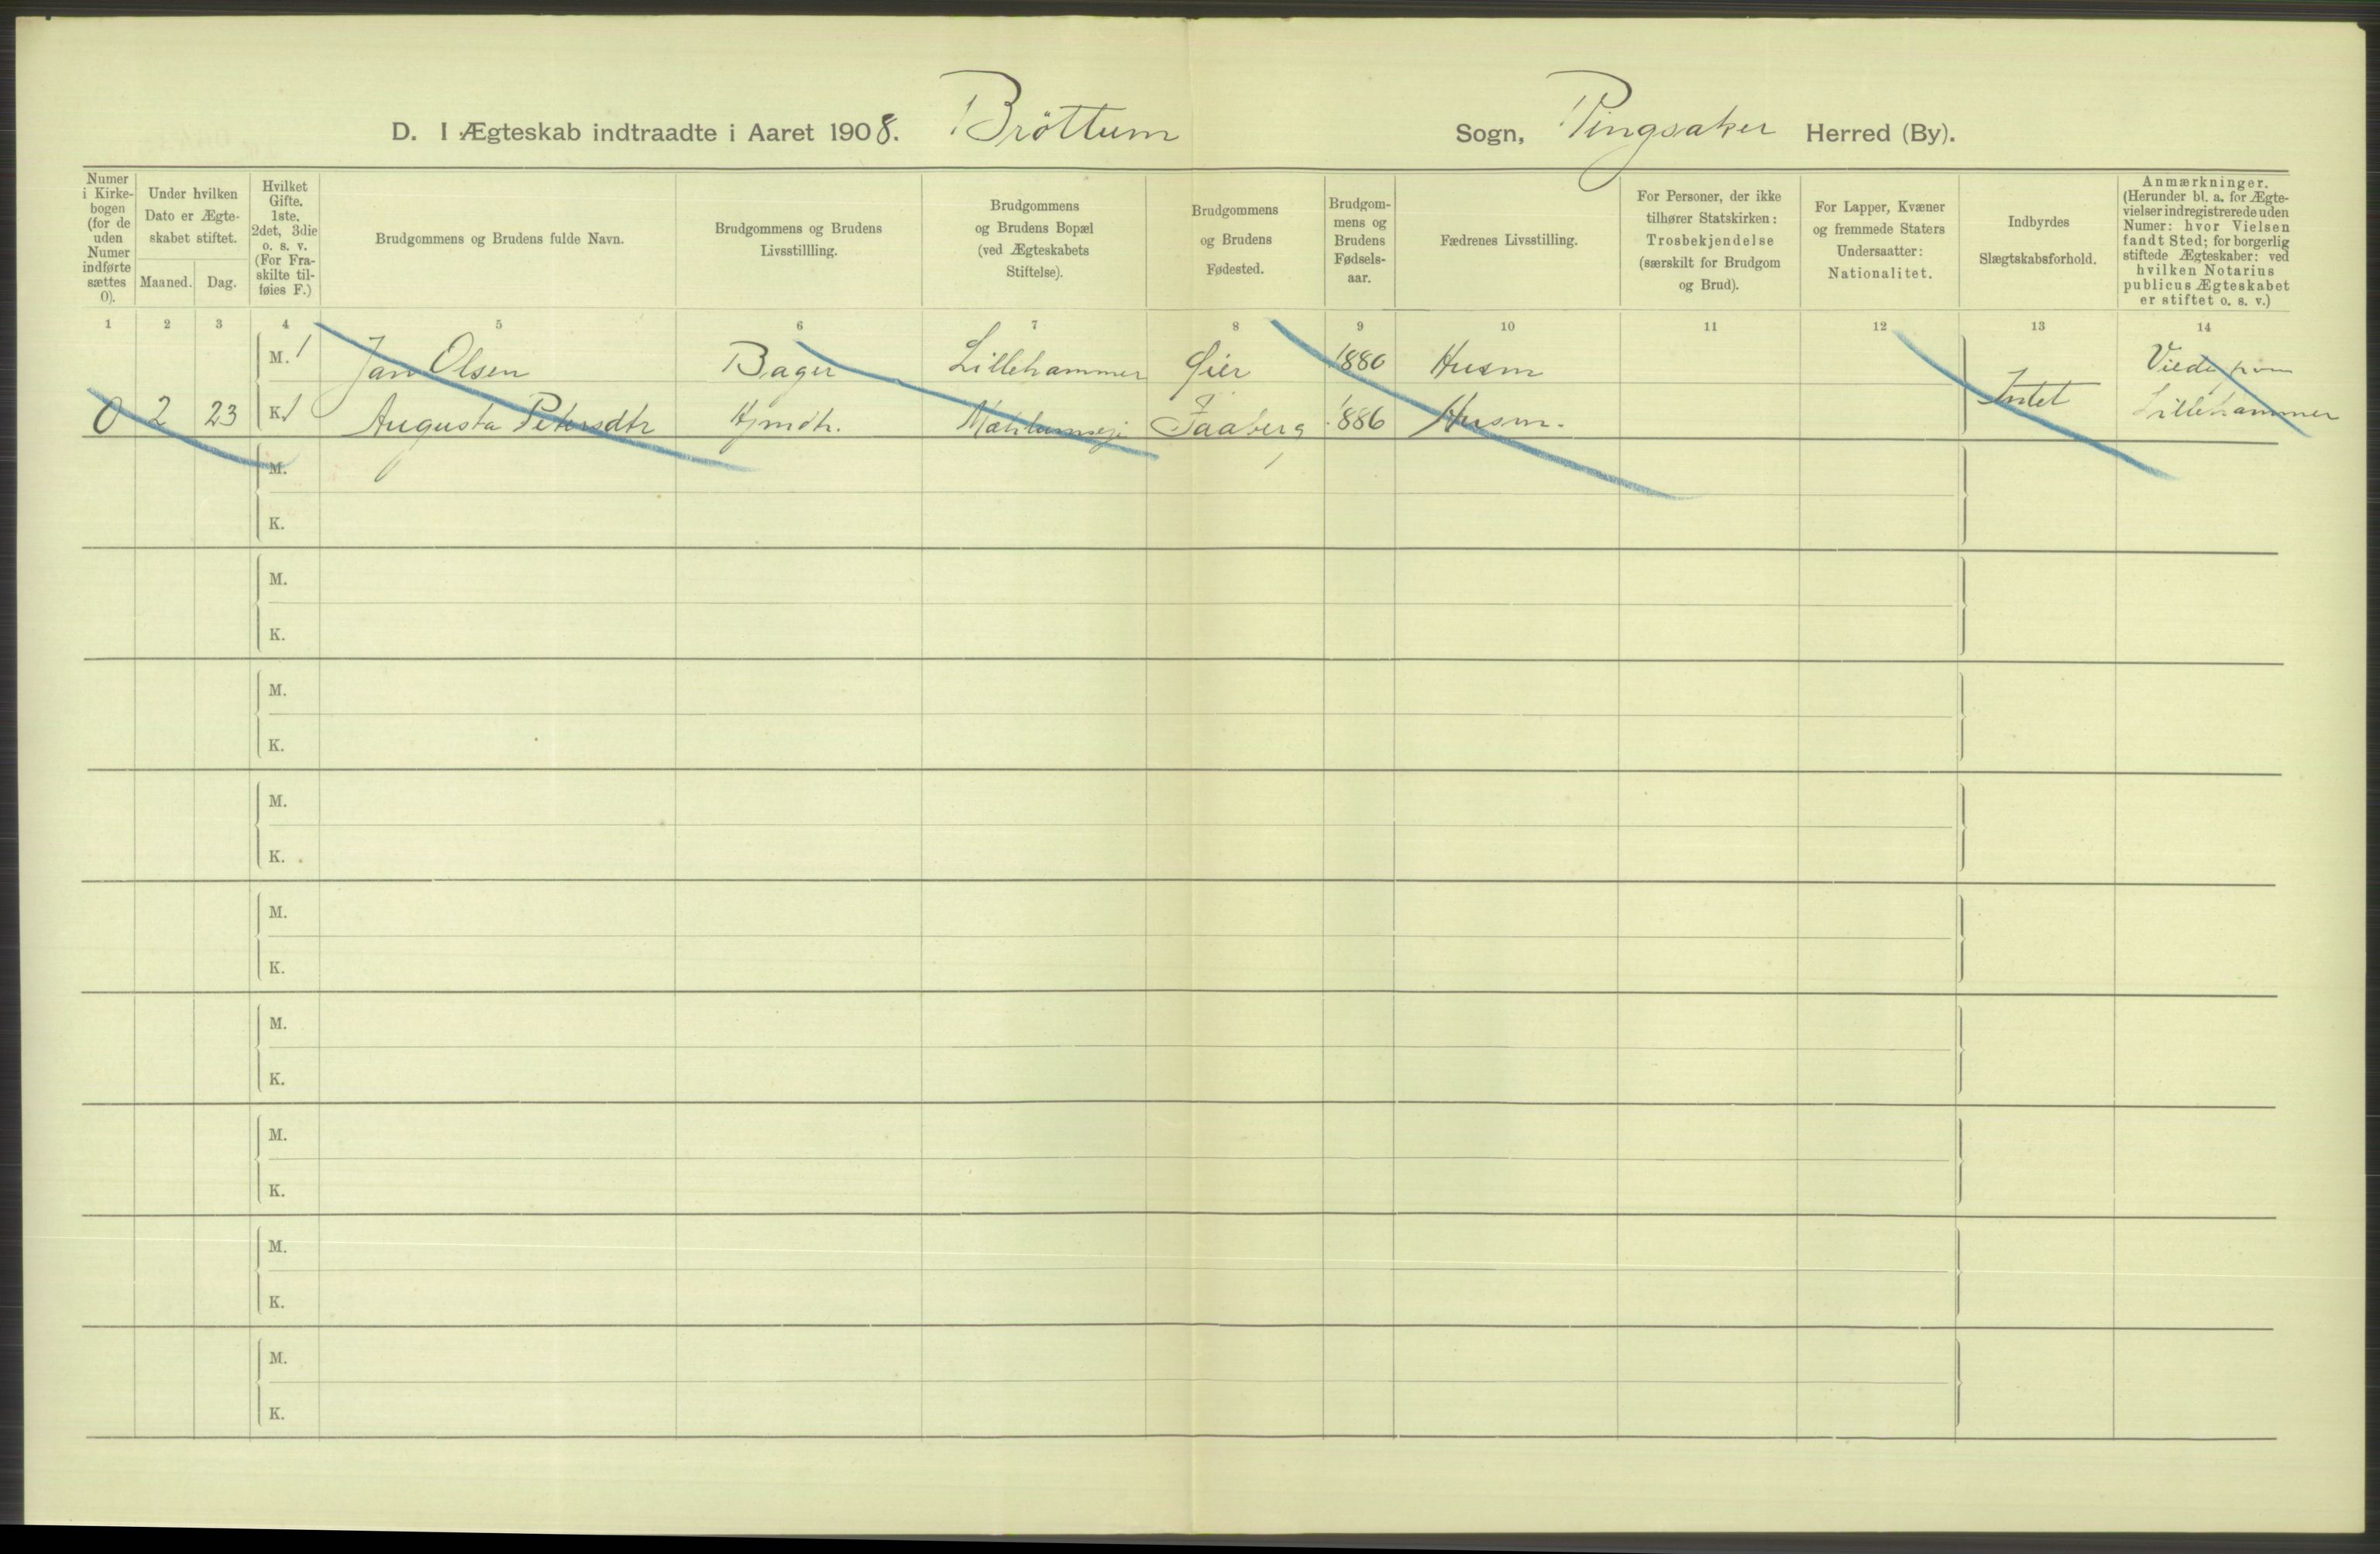 D. I Ægteskab indtraadte i Aaret 1908. Bröttum Sogn, Ringsaker Herred (By).
Numer i Kirkebogen (for de uden Numer indførte sættes 0).
Under hvilken Dato er Ægteskabet stiftet.
Maaned. Dag.
Hvilket Gifte. 1ste, 2det, 3die o. s. v. (For Fraskilte tilføies F.)
Brudgommens og Brudens fulde Navn.
Brudgommens og Brudens Livsstillling.
Brudgommens og Brudens Bopæl (ved Ægteskabets Stiftelse).
Brudgommens og Brudens Fødested.
Brudgommens og Brudens Fødselsaar.
Fædrenes Livsstilling.
For Personer, der ikke tilhører Statskirken: Trosbekjendelse (særskilt for Brudgom og Brud).
For Lapper, Kvæner og fremmede Staters Undersaatter: Nationalitet.
Indbyrdes Slægtskabsforhold.
Anmærkninger. (Herunder bl. a. for Ægtevielser indregistrerede uden Numer: hvor Vielsen fandt Sted; for borgerlig stiftede Ægteskaber: ved hvilken Notarius publicus Ægteskabet er stiftet o. s. v.)
1 2 3 4 5 6 7 8 9 10 11 12 13 14
M. 1 Jan Olsen Bager Lillehammer Øier 1880 Husm Viede
0 2 23 K. 1 Augusta Petersdtr Hjmdtr. Faaberg 1886 Husm. Intet Lillehammer
M.
K.
M.
K.
M.
K.
M.
K.
M.
K.
M.
K.
M.
K.
M.
K.
M.
K.